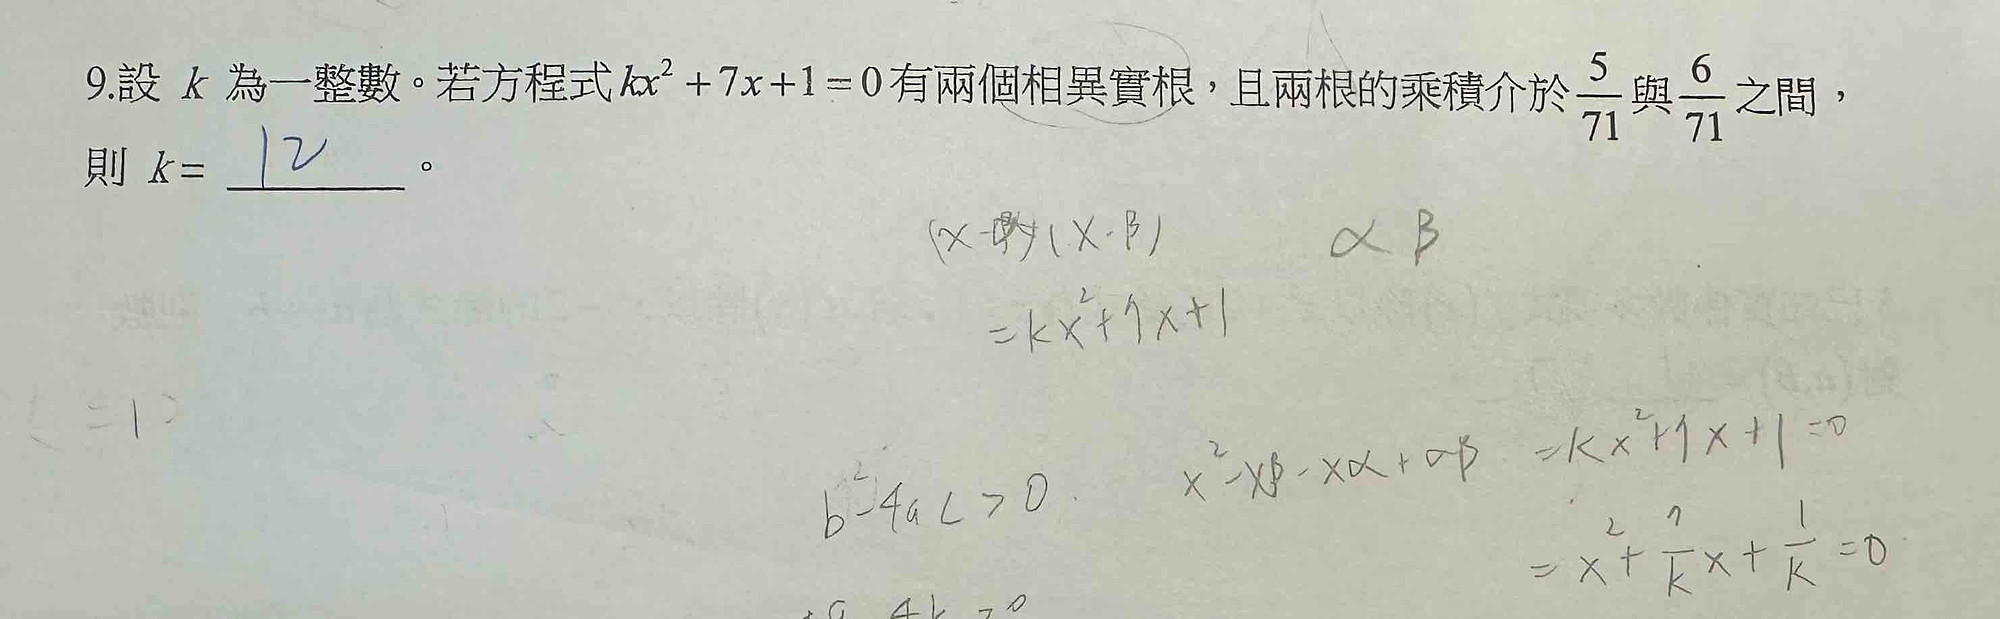 9.設 k 為一整數。若方程式 kx² + 7x + 1 = 0 有兩個相異實根，且兩根的乘積介於 5/71 與 6/71 之間，
則 k = 12 。
(x- )(x-β) αβ
= kx² + 7x + 1
b² - 4ac > 0 x² - xβ - xα + αβ = kx² + 7x + 1 = 0
= x² + 7/k x + 1/k = 0
4k > 0